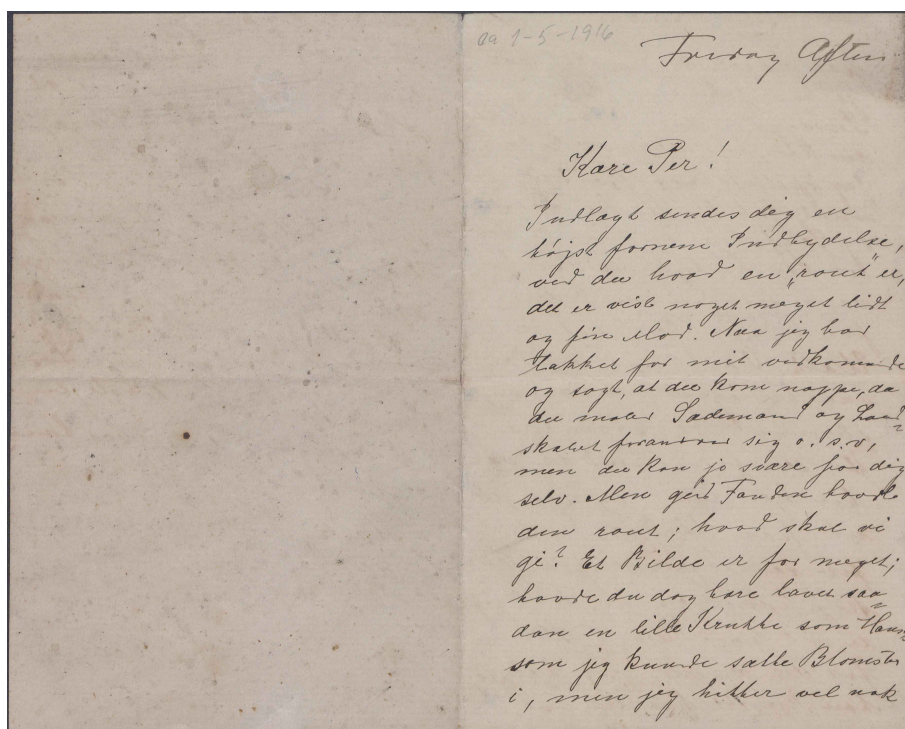 ca 1-5-1916
Fredag Aften
Kære Per!
Indlagt sendes dig en
højst fornem Indbydelse,
ved du hvad en „rout" er,
det er vist noget meget lidt
og fin Mad. Naa jeg har
takket for mit vedkommende
og sagt, at du kom næppe, da
du maler Sædemand og Land-
skabet forandrer sig o. s. v,
men du kan jo svare for dig
selv. Men gid Fanden havde
den rout; hvad skal vi
gi? Et Bilde er for meget;
havde du dog bare lavet saa-
dan en lille Krukke som Hans
som jeg kunde sætte Blomster
i, men jeg hitter vel nok